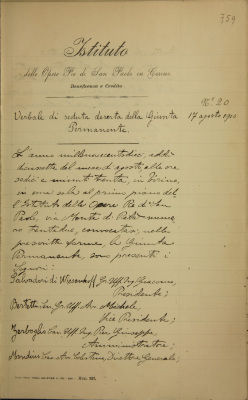 359
Istituto
delle Opere Pie di San Paolo in Torino
Beneficenza e Credito
N° 20
Verbale di seduta deserta della Giunta
17 agosto 1910
Permanente.
L'anno millenovecentodieci, addì
diciassette del mese di agosto alle ore
sedici e minuti trenta, in Torino,
in una sala al primo piano del
l'Istituto delle Opere Pie di San
Paolo, via Monte di Pietà numero
trentadue, convocatasi nelle
prescritte forme, la Giunta
Permanente, sono presenti i
Signori:
Salvadori di Wiesenhoff Gr. Uff. Ing. Giacomo,
Presidente;
Bertetti Gr. Uff. Avv. Michele
Vice Presidente;
Zerboglio Uff. Ing. Pier Giuseppe,
Amministratore;
Avv. Celestino, Direttore Generale;